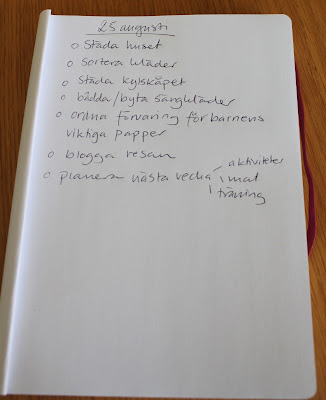 25 augusti
o Städa huset
o Sortera kläder
o Städa kylskåpet
o bädda/byta sängkläder
o ordna förvaring för barnens
viktiga papper
o blogga resan
o planera nästa vecka
aktiviteter
mat
träning